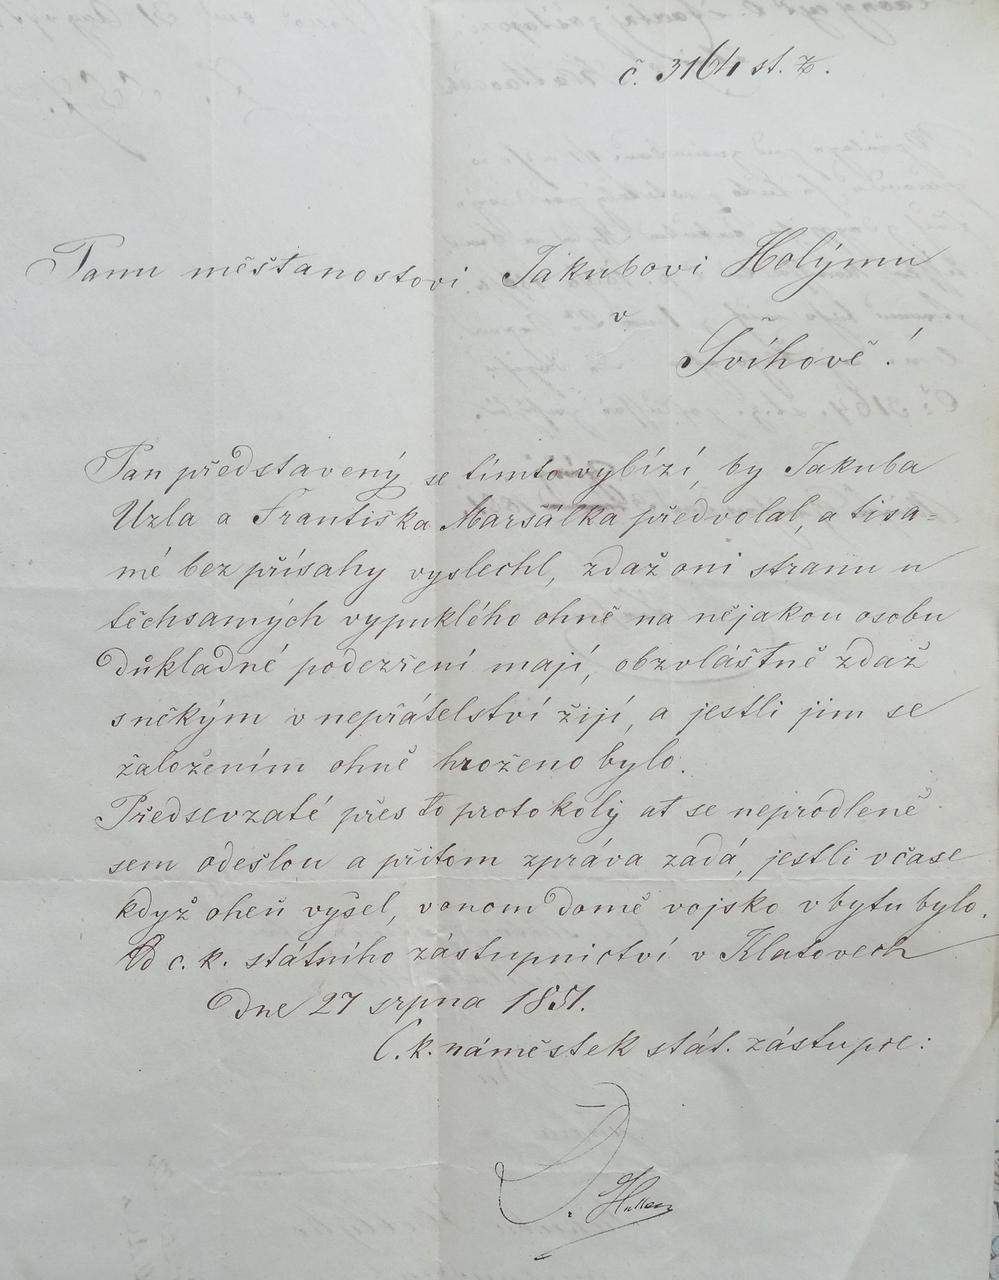 č. 3164 st. z.
Panu měšťanostovi Jakubovi Holýmu
v
Švihově!
Pan představený se tímto vybízí, by Jakuba
Uzla a Františka Maršálka předvolal, a tisa-
mé bez přísahy vyslechl, zdaž oni stranu u
těchsamých vypuklého ohně na nějakou osobu
důkladné podezření mají, obzvláštně zdaž
sněkým v nepřátelství žijí, a jestli jim se
založením ohně hroženo bylo.
Předsevzaté přes to protokoly ať se neprodleně
sem odešlou a přitom zpráva zadá, jestli včase
když oheň vyšel, vonom domě vojsko v bytu bylo.
Od c. k. státního zástupnictví v Klatovech
dne 27 srpna 1851.
C. k. náměstek stát. zástupce: